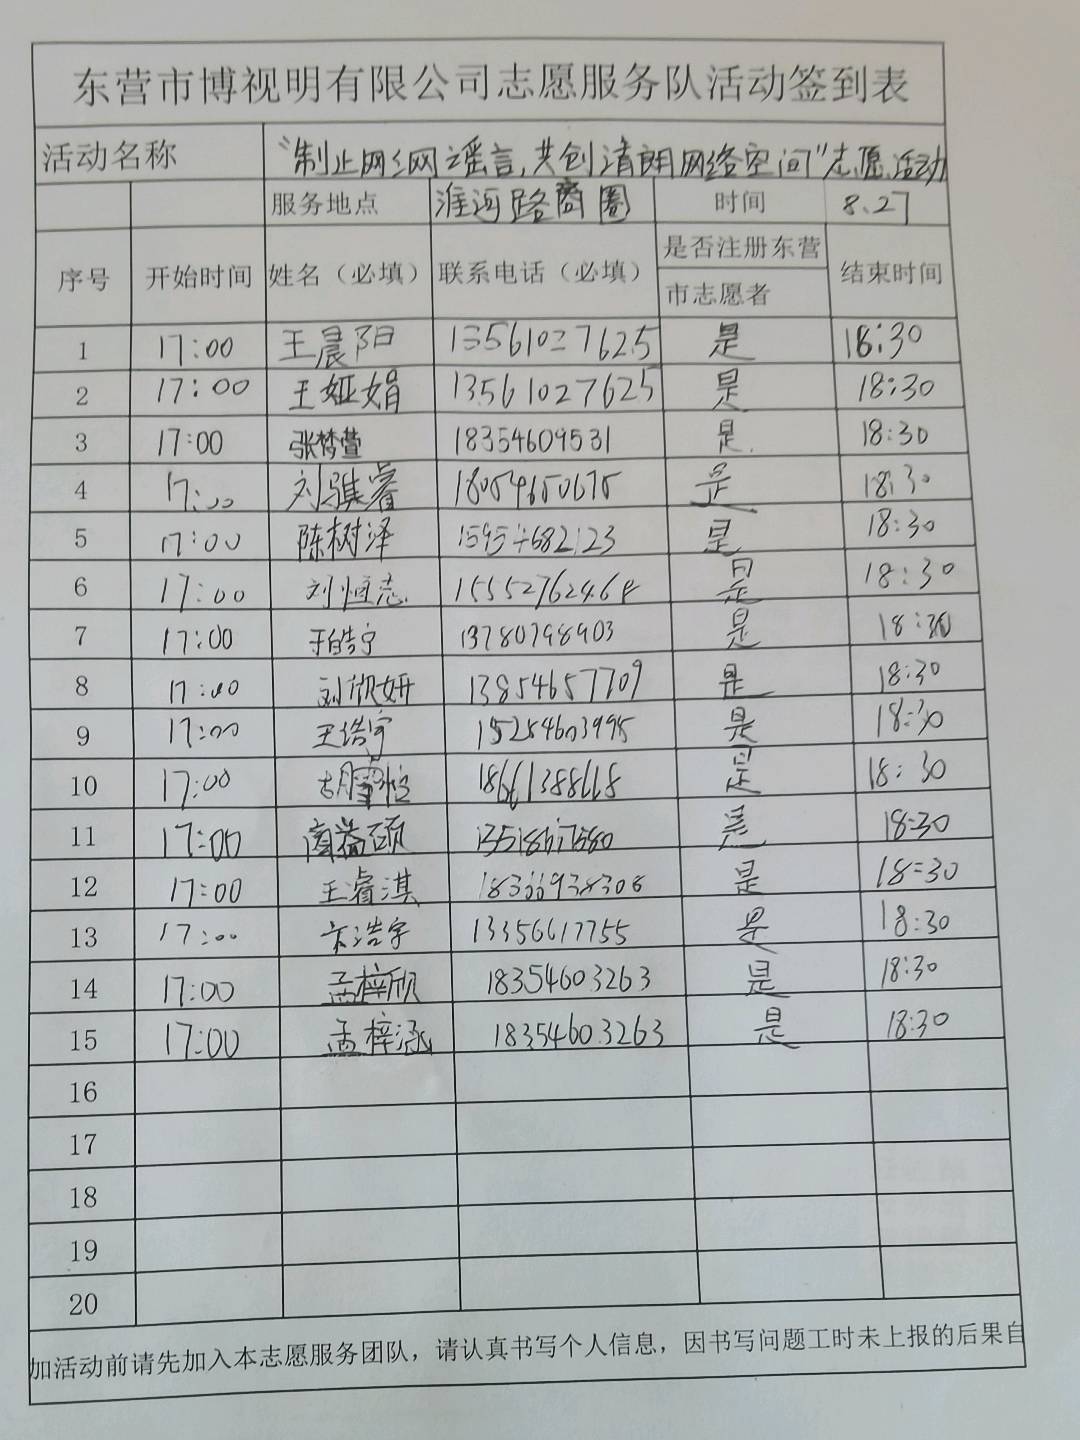 东营市博视明有限公司志愿服务队活动签到表
活动名称 "制止网络网谣言,共创清朗网络空间"志愿活动
服务地点 淮河路商圈 时间 8.27
序号 开始时间 姓名（必填） 联系电话（必填） 是否注册东营市志愿者 结束时间
1 17:00 王晨阳 13561027625 是 18:30
2 17:00 王娅娟 13561027625 是 18:30
3 17:00 张梦萱 18354609531 是 18:30
4 17:00 刘骐睿 18054650675 是 18:30
5 17:00 陈树泽 是 18:30
6 17:00 刘恒志 15552762464 是 18:30
7 17:00 于皓宁 13780798903 是 18:30
8 17:00 刘欣妍 13854657709 是 18:30
9 17:00 王浩宇 15254603995 是 18:30
10 17:00 18661388618 是 18:30
11 17:00 是 18:30
12 17:00 王睿淇 是 18:30
13 17:00 卞浩宇 13356617755 是 18:30
14 17:00 孟梓欣 18354603263 是 18:30
15 17:00 孟梓涵 18354603263 是 18:30
16
17
18
19
20
加活动前请先加入本志愿服务团队，请认真书写个人信息，因书写问题工时未上报的后果自